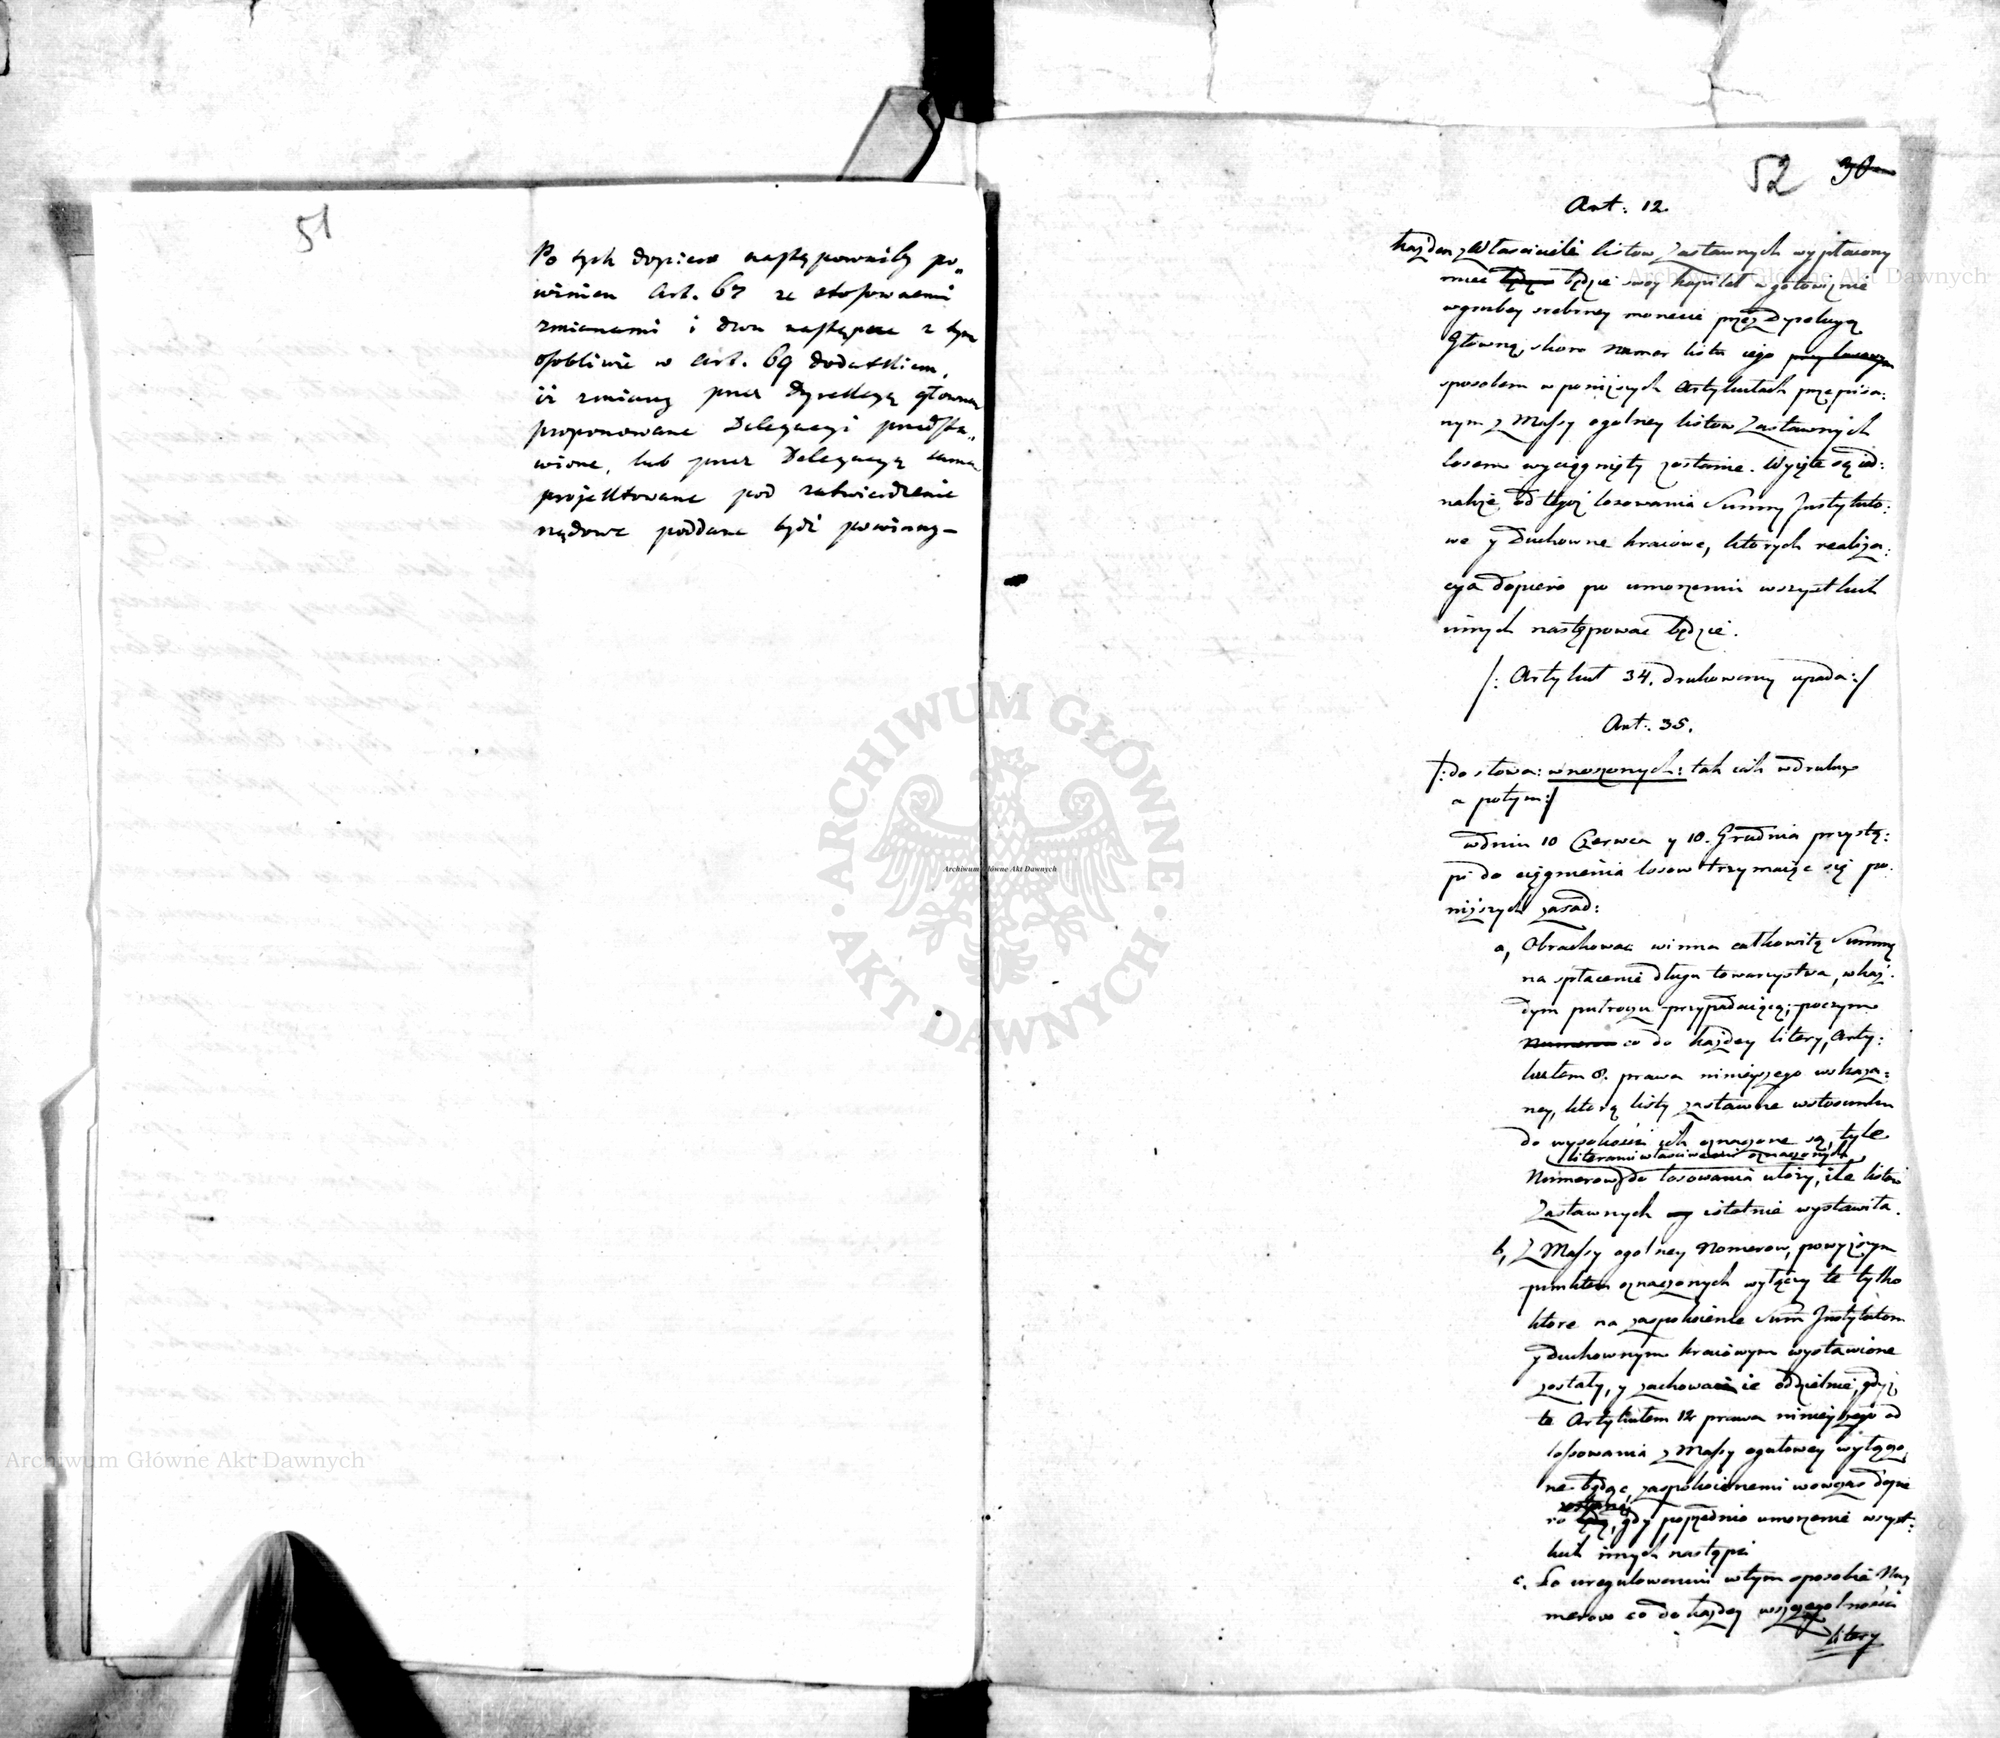 51
Po tych dopiero następowaćby po„
winien Art. 67 ze stosownemi
zmianami i dwa następne z tym
osobliwie w Art. 69 dodatkiem,
iż zmiany przez Dyrekcyą głowną
proponowane Delegacyi przedsta„
wione, lub przez Delegacyą samą
projektowane pod zatwierdzenie
rządowe poddane bydź powinny—
52 30
Art: 12
każden z Właścicieli listow Zastawnych wypłacony
mieć będzie swoy kapitał w gotowiznie
w grubey srebrney monecie przez Dyrekcyą
Główną, skoro Numer listu iego
sposobem w poniższych Artykułach przepisa:
nym z Massy ogolney listow Zastawnych
losem wyciągnięty zostanie. Wyięte są ied:
nakże od tegoż losowania Summy Instytuto:
we y Duchowne kraiowe, ktorych realiza:
cya dopiero po umorzeniu wszystkich
innych następować będzie.
/: Artykuł 34. drukowany upada :/
Art: 35.
/: do słowa: wnoszonych: tak iak w druku
a potym :/
w dniu 10 Czerwca y 10. Grudnia przystą:
pi do ciągnienia losow trzymaiąc się po:
niższych zasad:
a, Obrachować winna całkowitą Summę
na spłacenie długu towarzystwa, w każ:
dym pułroczu przypadaiącą; poczym
Numerow co do każdey litery, Arty:
kułem 8. prawa ninieyszego wskaza:
ney, którą listy zastawne w stosunku
do wysokości ich oznaczone są, tyle
literami właściwemi oznaczonych
Numerow do losowania ułoży, ile listow
Zastawnych istotnie wystawiła.
b, Z Massy ogolney Numerow, powyższym
punktem oznaczonych wyłączy te tylko
które na zaspokoienie Summ Instytutom
y Duchownym kraiowym wystawione
zostały, y zachowa ie oddzielnie, gdyż
te Artykułem 12 prawa ninieyszego od
lossowania z Massy ogułowey wyłączo:
ne będąc, zaspokoionemi wowczas dopie
zostaną
ro będą, gdy poprzednio umorzenie wszyst:
kich innych nastąpi
c. Po uregulowaniu w tym sposobie Nu:
merow co do każdey w szczegolności
litery
Archiwum Główne Akt Dawnych
Archiwum Główne Akt Dawnych
Archiwum Główne Akt Dawnych
ARCHIWUM GŁÓWNE · AKT DAWNYCH ·